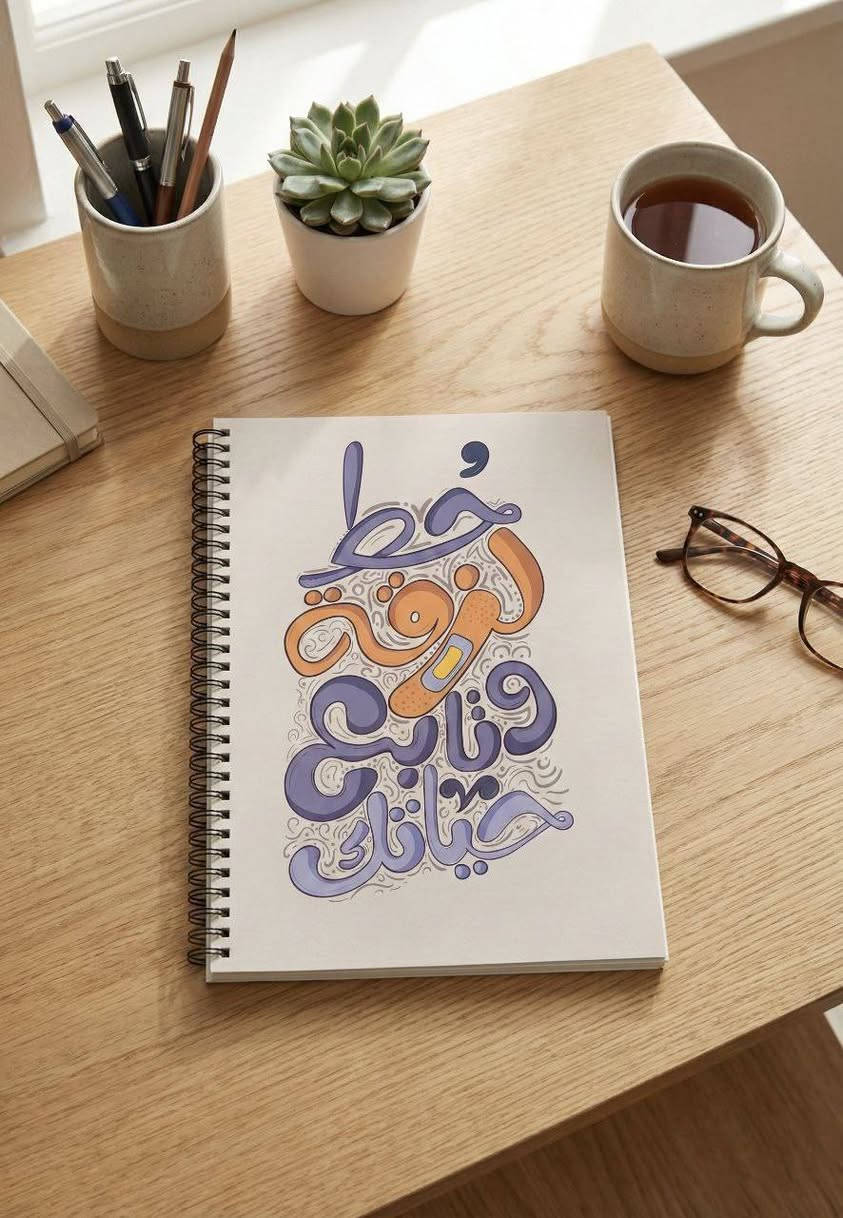 حُط
لزقة
وتابع
حياتك